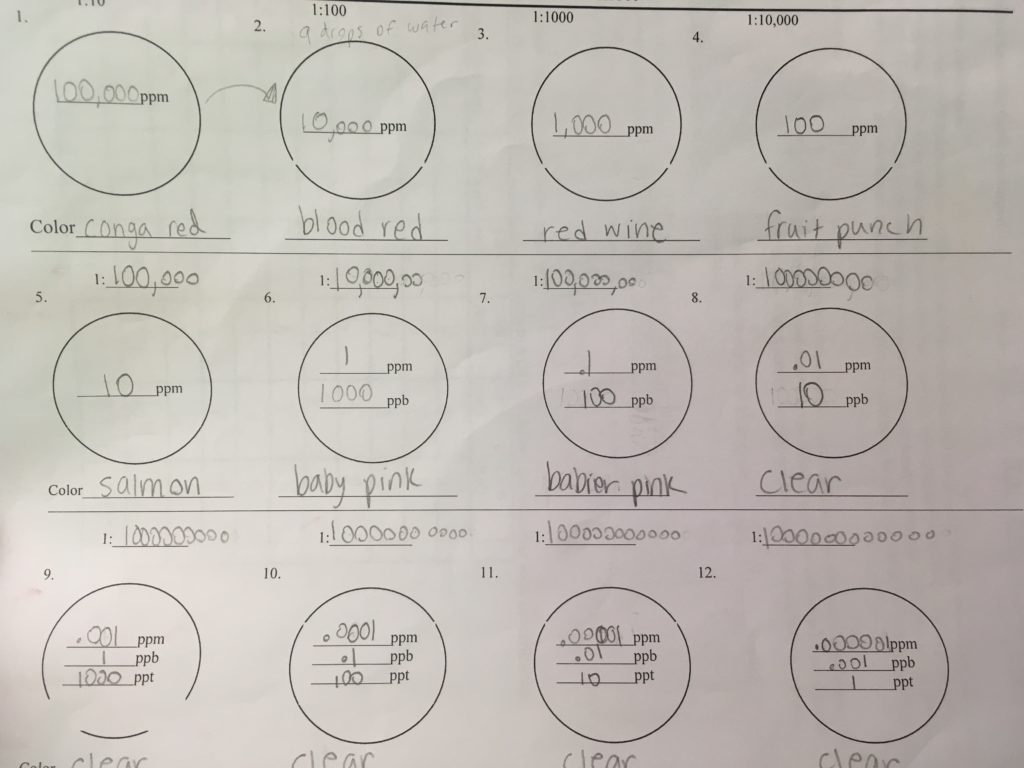 1:10
1:100
1:1000
1:10,000
1.
2.
9 drops of water
3.
4.
100,000 ppm
10,000 ppm
1,000 ppm
100 ppm
Color conga red
blood red
red wine
fruit punch
1: 100,000
1: 10,000,00
1: 100,000,00
1: 100000000
5.
6.
7.
8.
10 ppm
1 ppm
1000 ppb
.1 ppm
100 ppb
.01 ppm
10 ppb
Color salmon
baby pink
babier pink
clear
1: 1000000000
1: 10000000000
1: 100000000000
1: 1000000000000
9.
10.
11.
12.
.001 ppm
1 ppb
1000 ppt
.0001 ppm
.1 ppb
100 ppt
.00001 ppm
.01 ppb
10 ppt
.000001 ppm
.001 ppb
1 ppt
Color clear
clear
clear
clear